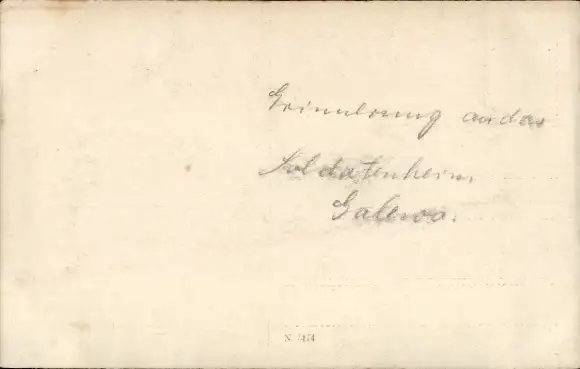 Erinnerung an das
Soldatenheim
Galewo.
N. 5474